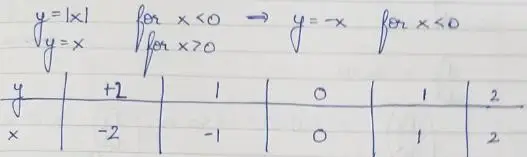 y=|x| for x<0 → y=-x for x<0
y=x for x>0
y +2 1 0 1 2
x -2 -1 0 1 2